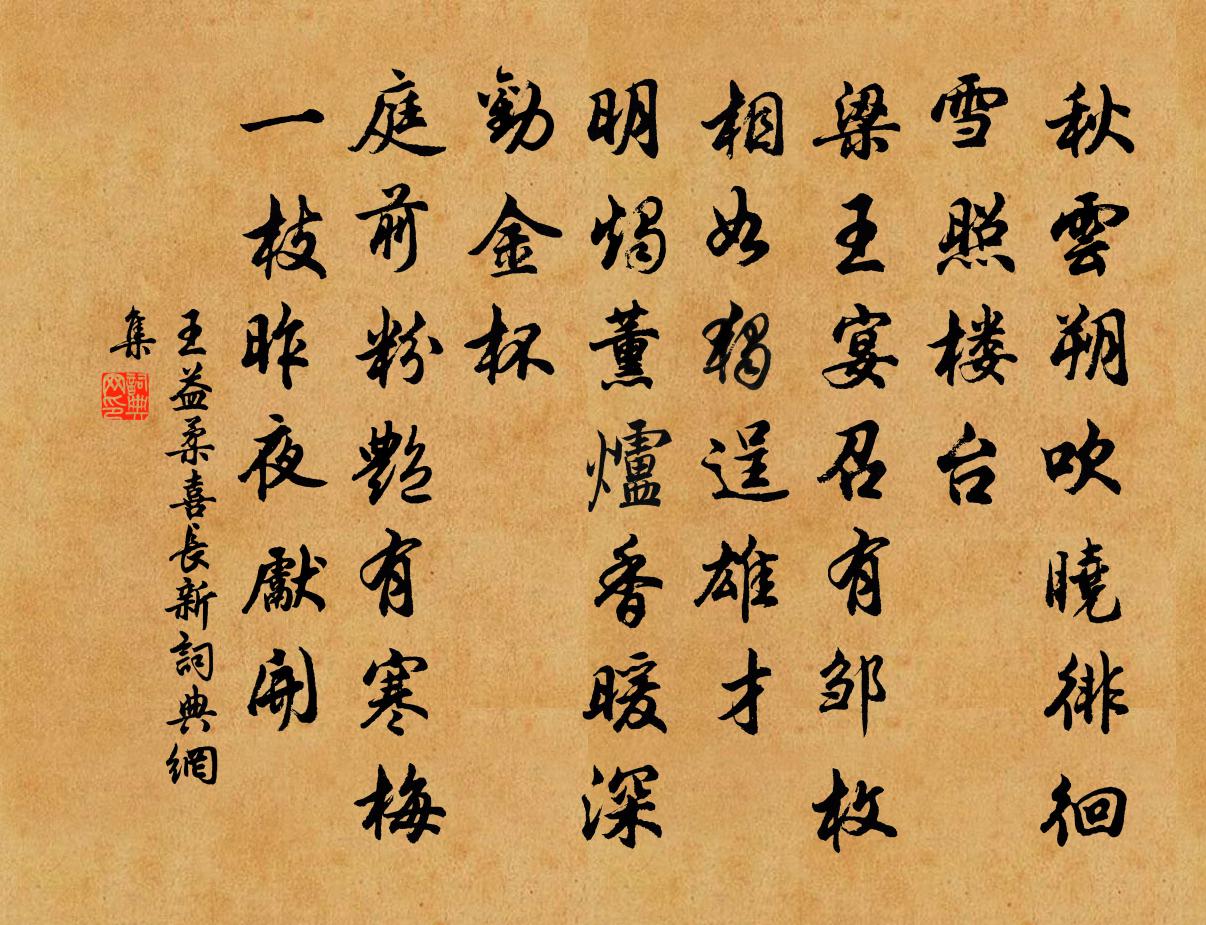 秋雲朔吹曉徘徊
雪照楼台
梁王宴召有邹枚
相如獨逞雄才
明燭薰爐香暖深
勸金杯
庭前粉艷有寒梅
一枝昨夜獻開
王益柔喜長新詞典網
集
詞典
网印